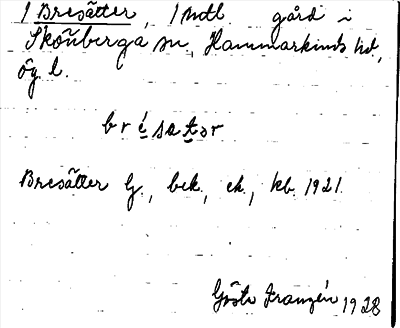 1 Bresätter, 1 mtl gård i
Skönberga sn, Hammarkinds hd,
Ög l.
brésatər
Bresätter G, bek, ek, kb 1921
Gösta Franzén 1928